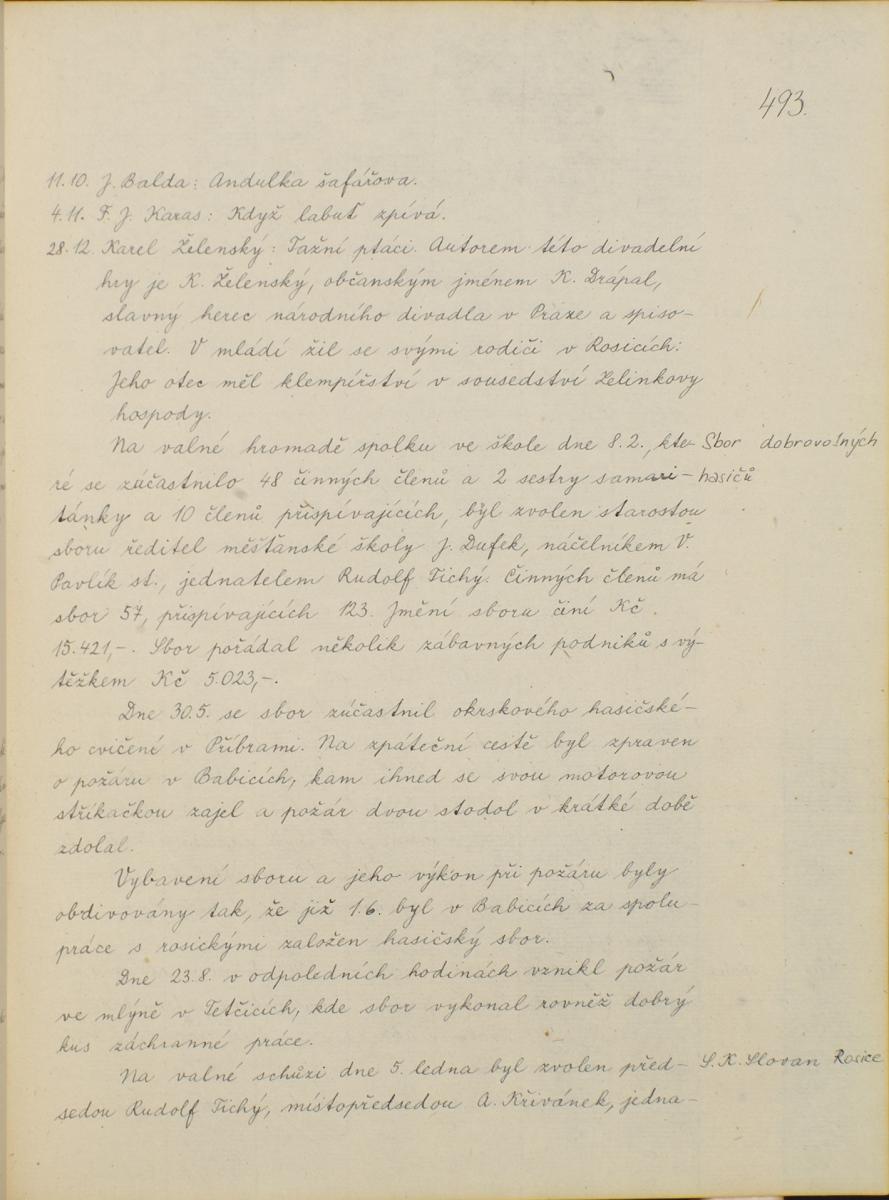 493.
11.10. J. Balda: Andulka šafářova.
4.11. F. J. Karas: Když labuť zpívá.
28.12. Karel Želenský: Tažní ptáci. Autorem této divadelní
hry je K. Želenský, občanským jménem K. Drápal,
slavný herec národního divadla v Praze a spiso-
vatel. V mládí žil se svými rodiči v Rosicích.
Jeho otec měl klempířství v sousedství Zelinkovy
hospody.
Na valné hromadě spolku ve škole dne 8.2., kte- Sbor dobrovolných
ré se zúčastnilo 48 činných členů a 2 sestry samari- hasičů
tánky a 10 členů přispívajících, byl zvolen starostou
sboru ředitel měšťanské školy J. Dufek, náčelníkem V.
Pavlík st., jednatelem Rudolf Tichý. Činných členů má
sbor 57, přispívajících 123. Jmění sboru činí Kč
15.421,-. Sbor pořádal několik zábavných podniků s vý-
těžkem Kč 5.023,-.
Dne 30.5. se sbor zúčastnil okrskového hasičské-
ho cvičení v Příbrami. Na zpáteční cestě byl zpraven
o požáru v Babicích, kam ihned se svou motorovou
stříkačkou zajel a požár dvou stodol v krátké době
zdolal.
Vybavení sboru a jeho výkon při požáru byly
obdivovány tak, že již 1.6. byl v Babicích za spolu-
práce s rosickými založen hasičský sbor.
Dne 23.8. v odpoledních hodinách vznikl požár
ve mlýně v Tetčicích, kde sbor vykonal rovněž dobrý
kus záchranné práce.
Na valné schůzi dne 5. ledna byl zvolen před- S. K. Slovan Rosice
sedou Rudolf Tichý, místopředsedou A. Křivánek, jedna-